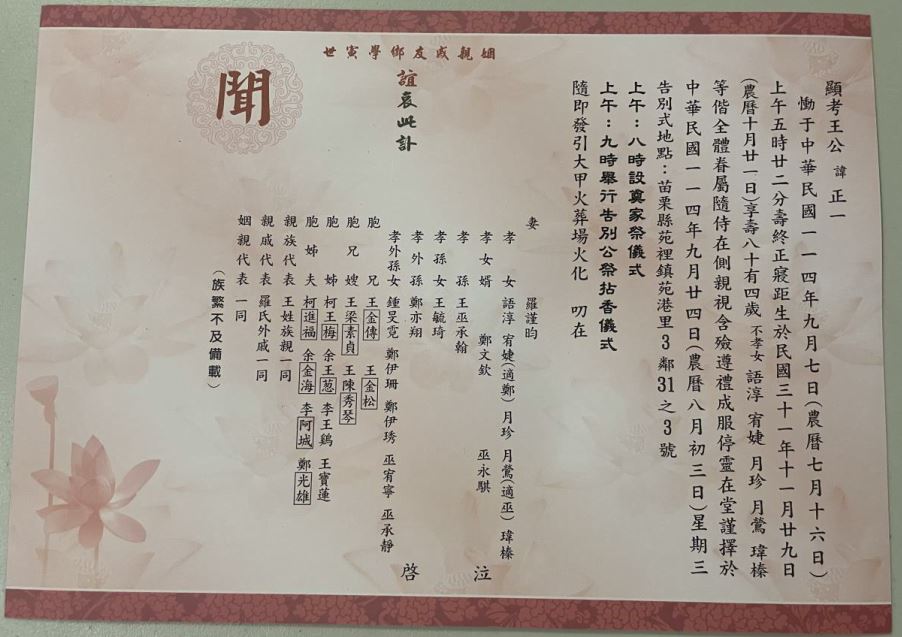 顯考王公諱正一
慟于中華民國一一四年九月七日(農曆七月十六日)
上午五時廿二分壽終正寢距生於民國三十一年十一月廿九日
(農曆十月廿一日)享壽八十有四歲 不孝女 語淳 宥婕 月珍 月鶯 瑋榛
等偕全體眷屬隨侍在側親視含殮遵禮成服停靈在堂謹擇於
中華民國一一四年九月廿四日(農曆八月初三日)星期三
告別式地點:苗栗縣苑裡鎮苑港里3鄰31之3號
上午:八時設奠家祭儀式
上午:九時舉行告別公祭拈香儀式
隨即發引大甲火葬場火化 叨在
姻親戚友鄉學寅世
誼哀此訃
聞
妻 羅謹昀
孝女 語淳 宥婕(適鄭) 月珍 月鶯(適巫) 瑋榛
孝女婿 鄭文欽 巫永騏
孝孫 王巫承翰
孝孫女 王毓琦
孝外孫 鄭亦翔
孝外孫女 鍾旻霓 鄭伊珊 鄭伊琇 巫宥寧 巫承靜
泣
啓
胞兄 王金傳 王金松
胞兄嫂 王梁素貞 王陳秀琴
胞姊 柯王梅 余王葱 李王鷄 王寶蓮
胞姊夫 柯進福 余金海 李阿城 鄭光雄
親族代表 王姓族親一同
親戚代表 羅氏外戚一同
姻親代表 一同
(族繁不及備載)